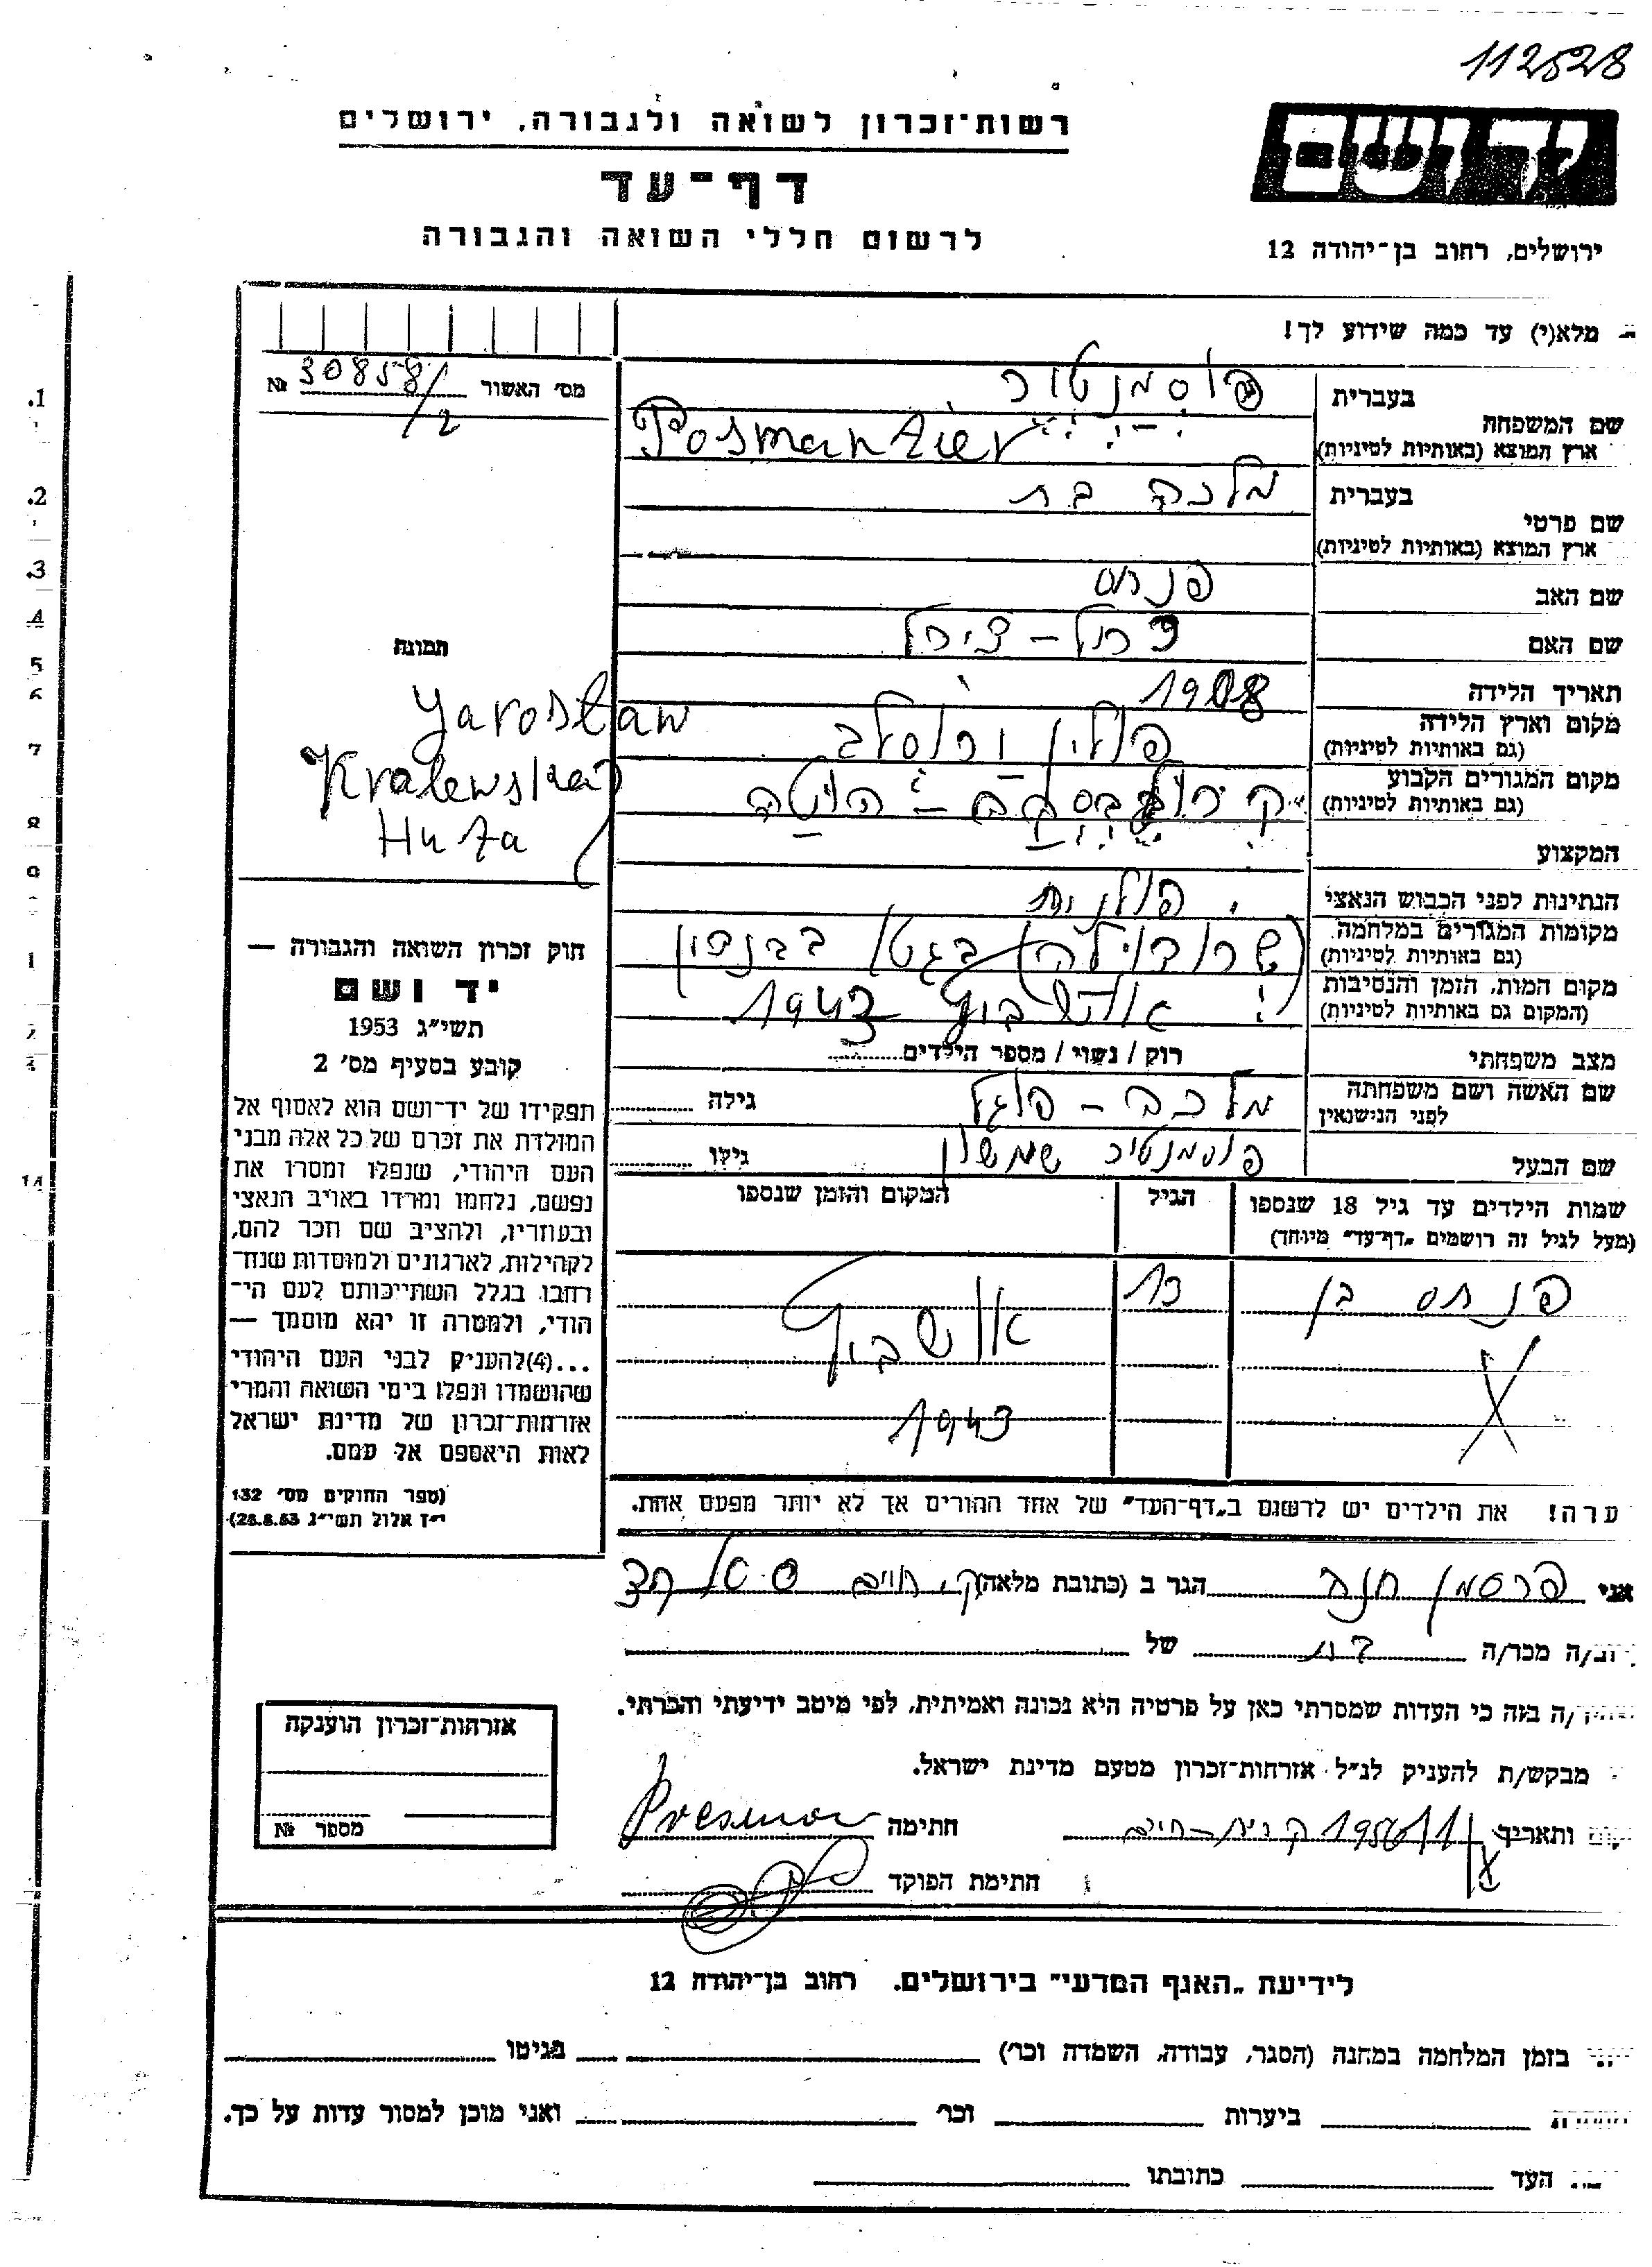 112528
יד ושם
רשות־זכרון לשואה ולגבורה, ירושלים
דף־עד
לרשום חללי השואה והגבורה
ירושלים, רחוב בן־יהודה 12
מלא(י) עד כמה שידוע לך!
מס׳ האשור № 30858/2
בעברית
שם המשפחה
ארץ המוצא (באותיות לטיניות) Posmantier
בעברית מלכה בת
שם פרטי
ארץ המוצא (באותיות לטיניות)
שם האב פנחס
שם האם
תאריך הלידה 1908
מקום וארץ הלידה פולין ירוסלב
(גם באותיות לטיניות)
מקום המגורים הקבוע
(גם באותיות לטיניות)
המקצוע
הנתינות לפני הכבוש הנאצי פולנית
מקומות המגורים במלחמה (שרודולה) בגטו בבנדין
(גם באותיות לטיניות)
מקום המות, הזמן והנסיבות אושביץ 1943
(המקום גם באותיות לטיניות)
מצב משפחתי רוק / נשוי / מספר הילדים
שם האשה ושם משפחתה
לפני הנישואין גילה
שם הבעל שמשון גילו
תמונה
Yarosław
Kralewska
Huta
חוק זכרון השואה והגבורה —
יד ושם
תשי״ג 1953
קובע בסעיף מס׳ 2
תפקידו של יד־ושם הוא לאסוף אל
המולדת את זכרם של כל אלה מבני
העם היהודי, שנפלו ומסרו את
נפשם, נלחמו ומרדו באויב הנאצי
ובעוזריו, ולהציב שם וזכר להם,
לקהילות, לארגונים ולמוסדות שנח־
רבו בגלל השתייכותם לעם הי־
הודי, ולמטרה זו יהא מוסמך —
...(4) להעניק לבני העם היהודי
שהושמדו ונפלו בימי השואה והמרי
אזרחות־זכרון של מדינת ישראל
לאות היאספם אל עמם.
(ספר החוקים מס׳ 132
י״ז אלול תשי״ג 28.8.53)
שמות הילדים עד גיל 18 שנספו הגיל המקום והזמן שנספו
(מעל לגיל זה רושמים „דף־עד״ מיוחד)
פנחס בן 13 אושביץ
1943
ערה! את הילדים יש לרשום ב„דף־העד״ של אחד ההורים אך לא יותר מפעם אחת.
אני פרסמן חנה הגר ב (כתובת מלאה) ק. חיים
מכר/ה של
ה בזה כי העדות שמסרתי כאן על פרטיה היא נכונה ואמיתית, לפי מיטב ידיעתי והכרתי.
מבקש/ת להעניק לנ״ל אזרחות־זכרון מטעם מדינת ישראל.
ותאריך 1956 קרית-חיים חתימה
חתימת הפוקד
אזרחות־זכרון הוענקה
מספר №
לידיעת „האגף המדעי״ בירושלים, רחוב בן־יהודה 12
בזמן המלחמה במחנה (הסגר, עבודה, השמדה וכר׳) בגיטו
ביערות וכר׳ ואני מוכן למסור עדות על כך.
העד כתובתו